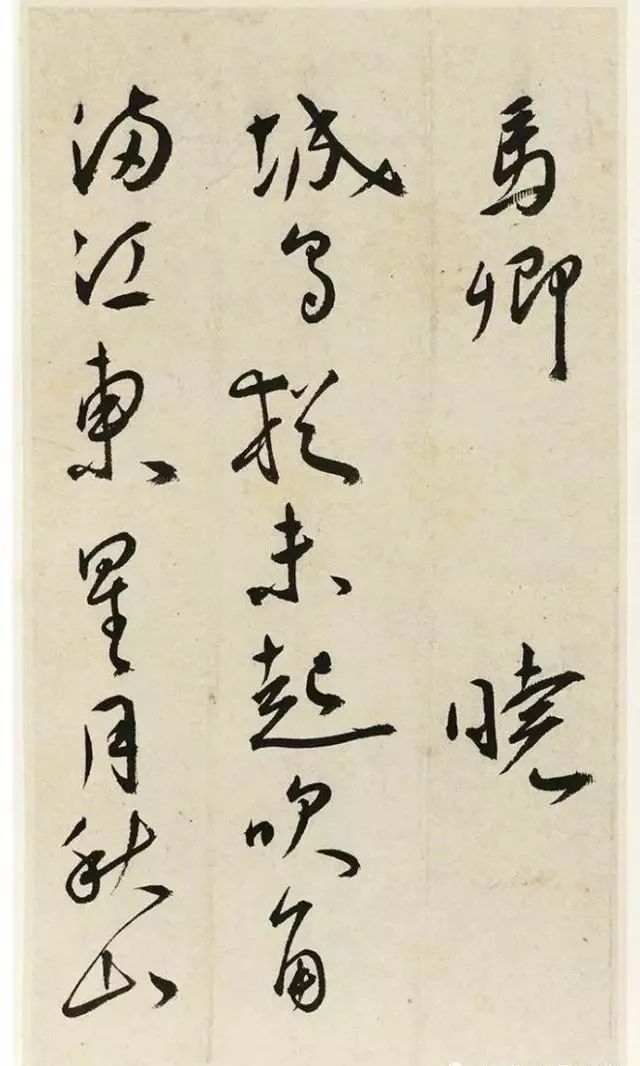 馬卿 曉
城烏搃未起吹角
滿江東星月秋山